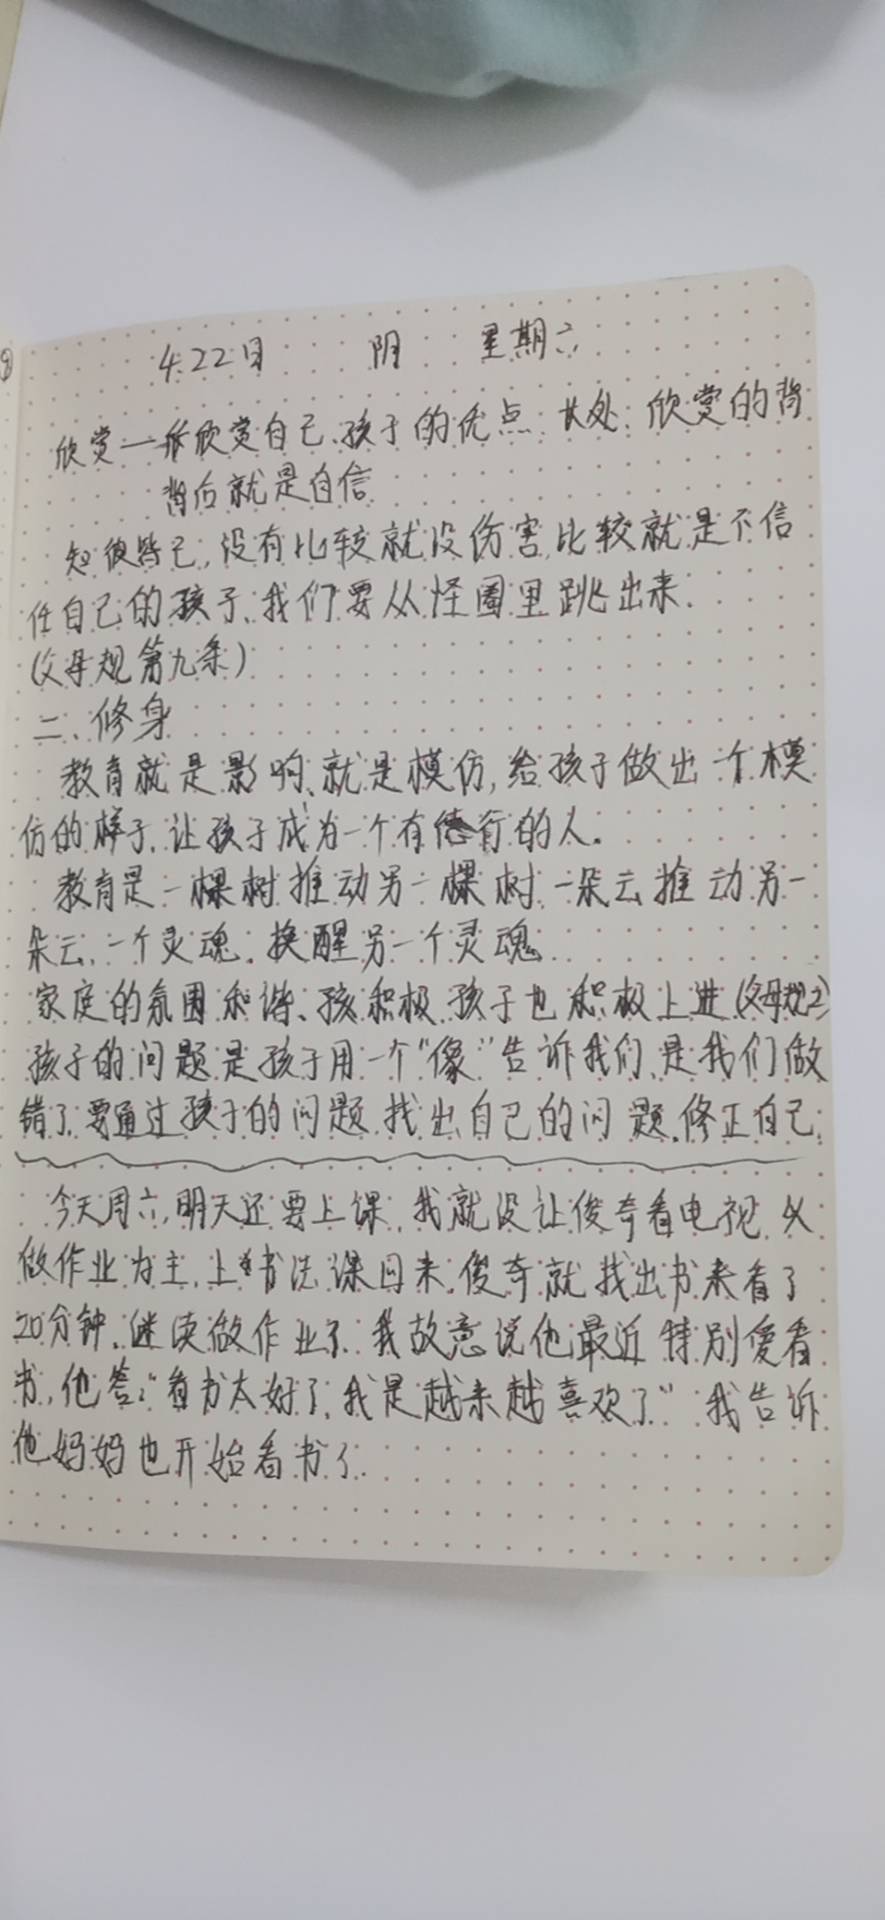 4.22日 阴 星期六
欣赏一 欣赏自己、孩子的优点 长处、欣赏的背
背后就是自信
知彼 己,没有比较就没伤害,比较就是不信
任自己的孩子、我们要从怪圈里跳出来.
(父母规第九条)
二、修身
教育就是影响、就是模仿,给孩子做出一个模
仿的样子、让孩子成为一个有德行的人。
教育是一棵树推动另一棵树、一朵云推动另一
朵云、一个灵魂.换醒另一个灵魂
家庭的氛围和谐、孩积极 孩子也积极上进(父母规2)
孩子的问题是孩子用一个"像"告诉我们、是我们做
错了、要通过孩子的问题、找出自己的问题.修正自己.
今天周六,明天还要上课,我就没让俊奇看电视,以
做作业为主,上 书法课回来.俊奇就找出书来看了
20分钟,继续做作业了.我故意说他最近特别爱看
书,他答:"看书太好了,我是越来越喜欢了"我告诉
他妈妈也开始看书了.